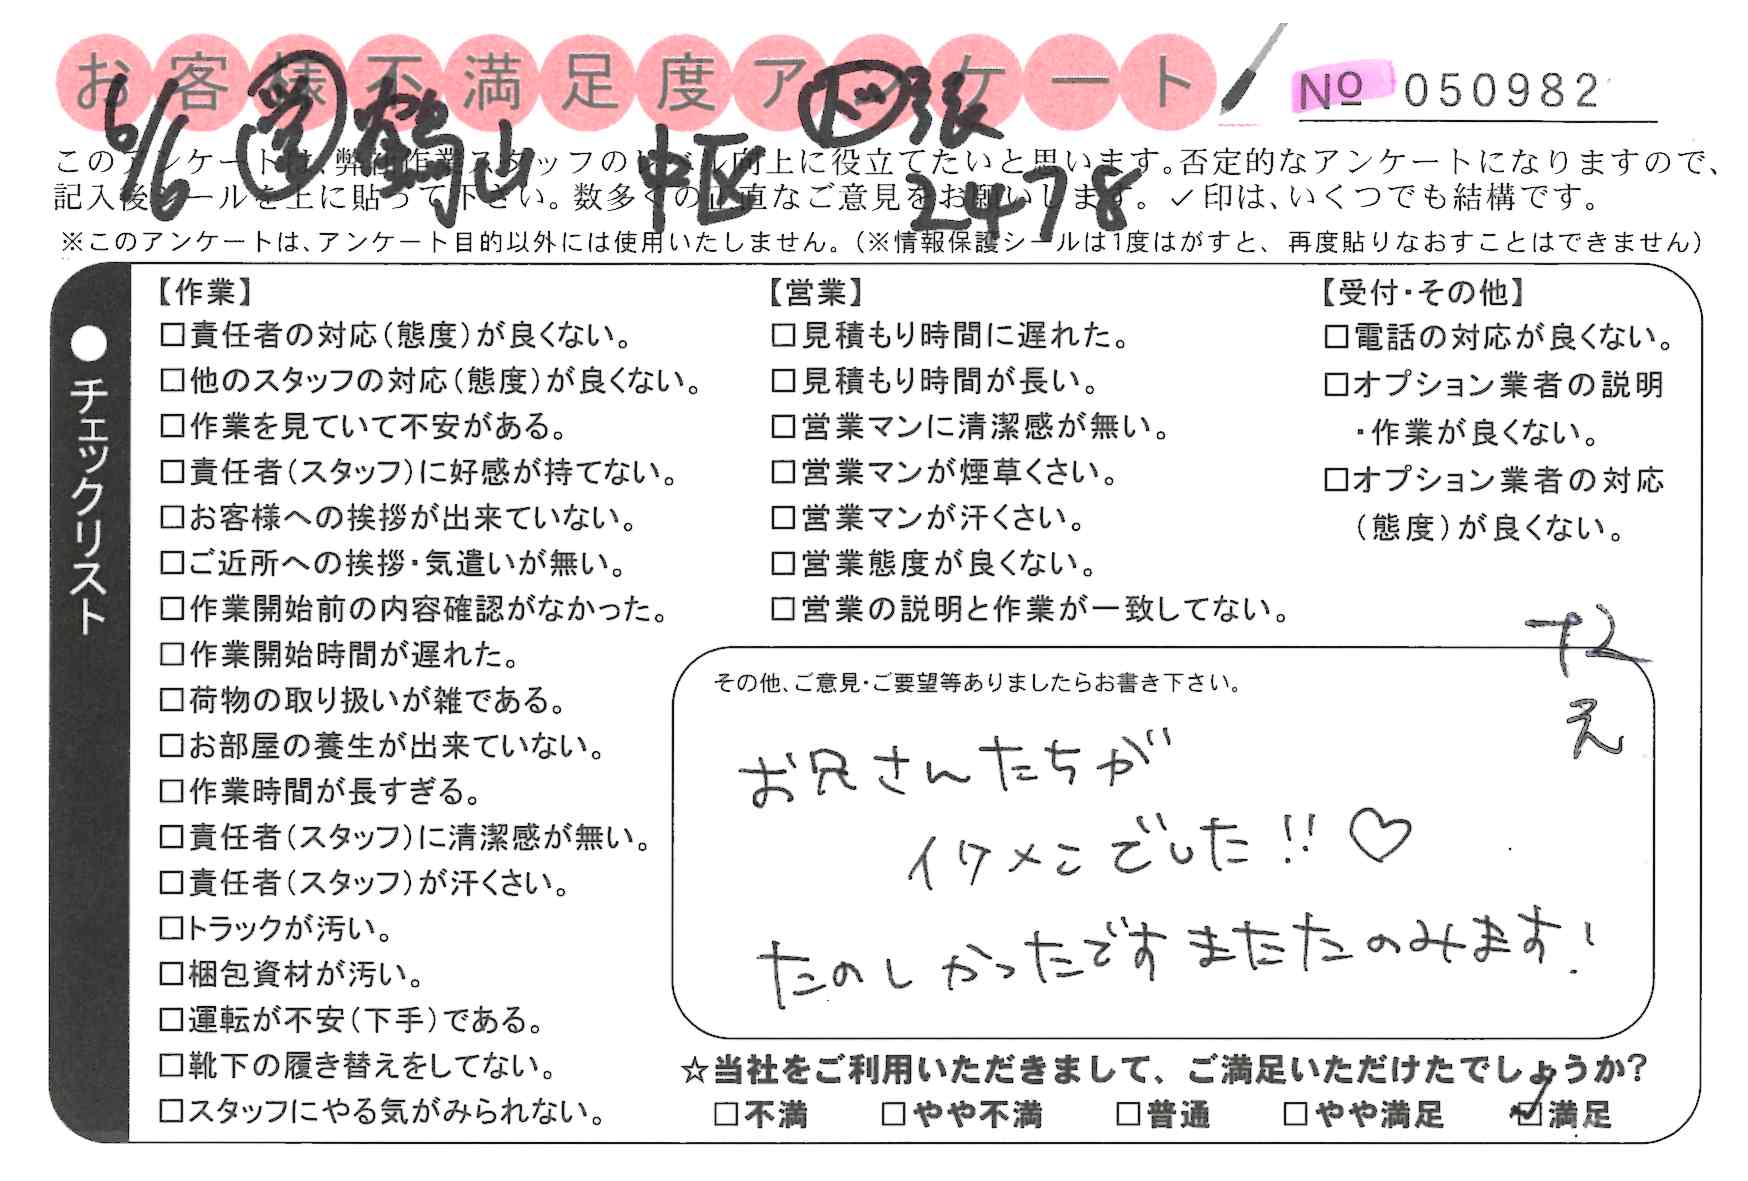 お客様不満足度アンケート
№ 050982
6/6 営 鶴山 中区 下ツ張 2478
このアンケートは、弊社作業スタッフのレベル向上に役立てたいと思います。否定的なアンケートになりますので、
記入後シールを上に貼って下さい。数多くの正直なご意見をお願いします。✓印は、いくつでも結構です。
※このアンケートは、アンケート目的以外には使用いたしません。(※情報保護シールは1度はがすと、再度貼りなおすことはできません)
●チェックリスト
【作業】
□責任者の対応(態度)が良くない。
□他のスタッフの対応(態度)が良くない。
□作業を見ていて不安がある。
□責任者(スタッフ)に好感が持てない。
□お客様への挨拶が出来ていない。
□ご近所への挨拶・気遣いが無い。
□作業開始前の内容確認がなかった。
□作業開始時間が遅れた。
□荷物の取り扱いが雑である。
□お部屋の養生が出来ていない。
□作業時間が長すぎる。
□責任者(スタッフ)に清潔感が無い。
□責任者(スタッフ)が汗くさい。
□トラックが汚い。
□梱包資材が汚い。
□運転が不安(下手)である。
□靴下の履き替えをしてない。
□スタッフにやる気がみられない。
【営業】
□見積もり時間に遅れた。
□見積もり時間が長い。
□営業マンに清潔感が無い。
□営業マンが煙草くさい。
□営業マンが汗くさい。
□営業態度が良くない。
□営業の説明と作業が一致してない。
【受付・その他】
□電話の対応が良くない。
□オプション業者の説明
・作業が良くない。
□オプション業者の対応
(態度)が良くない。
その他、ご意見・ご要望等ありましたらお書き下さい。
お兄さんたちが
イケメンでした!!♡
たのしかったですまたたのみます!
☆当社をご利用いただきまして、ご満足いただけたでしょうか?
□不満 □やや不満 □普通 □やや満足 ☑満足